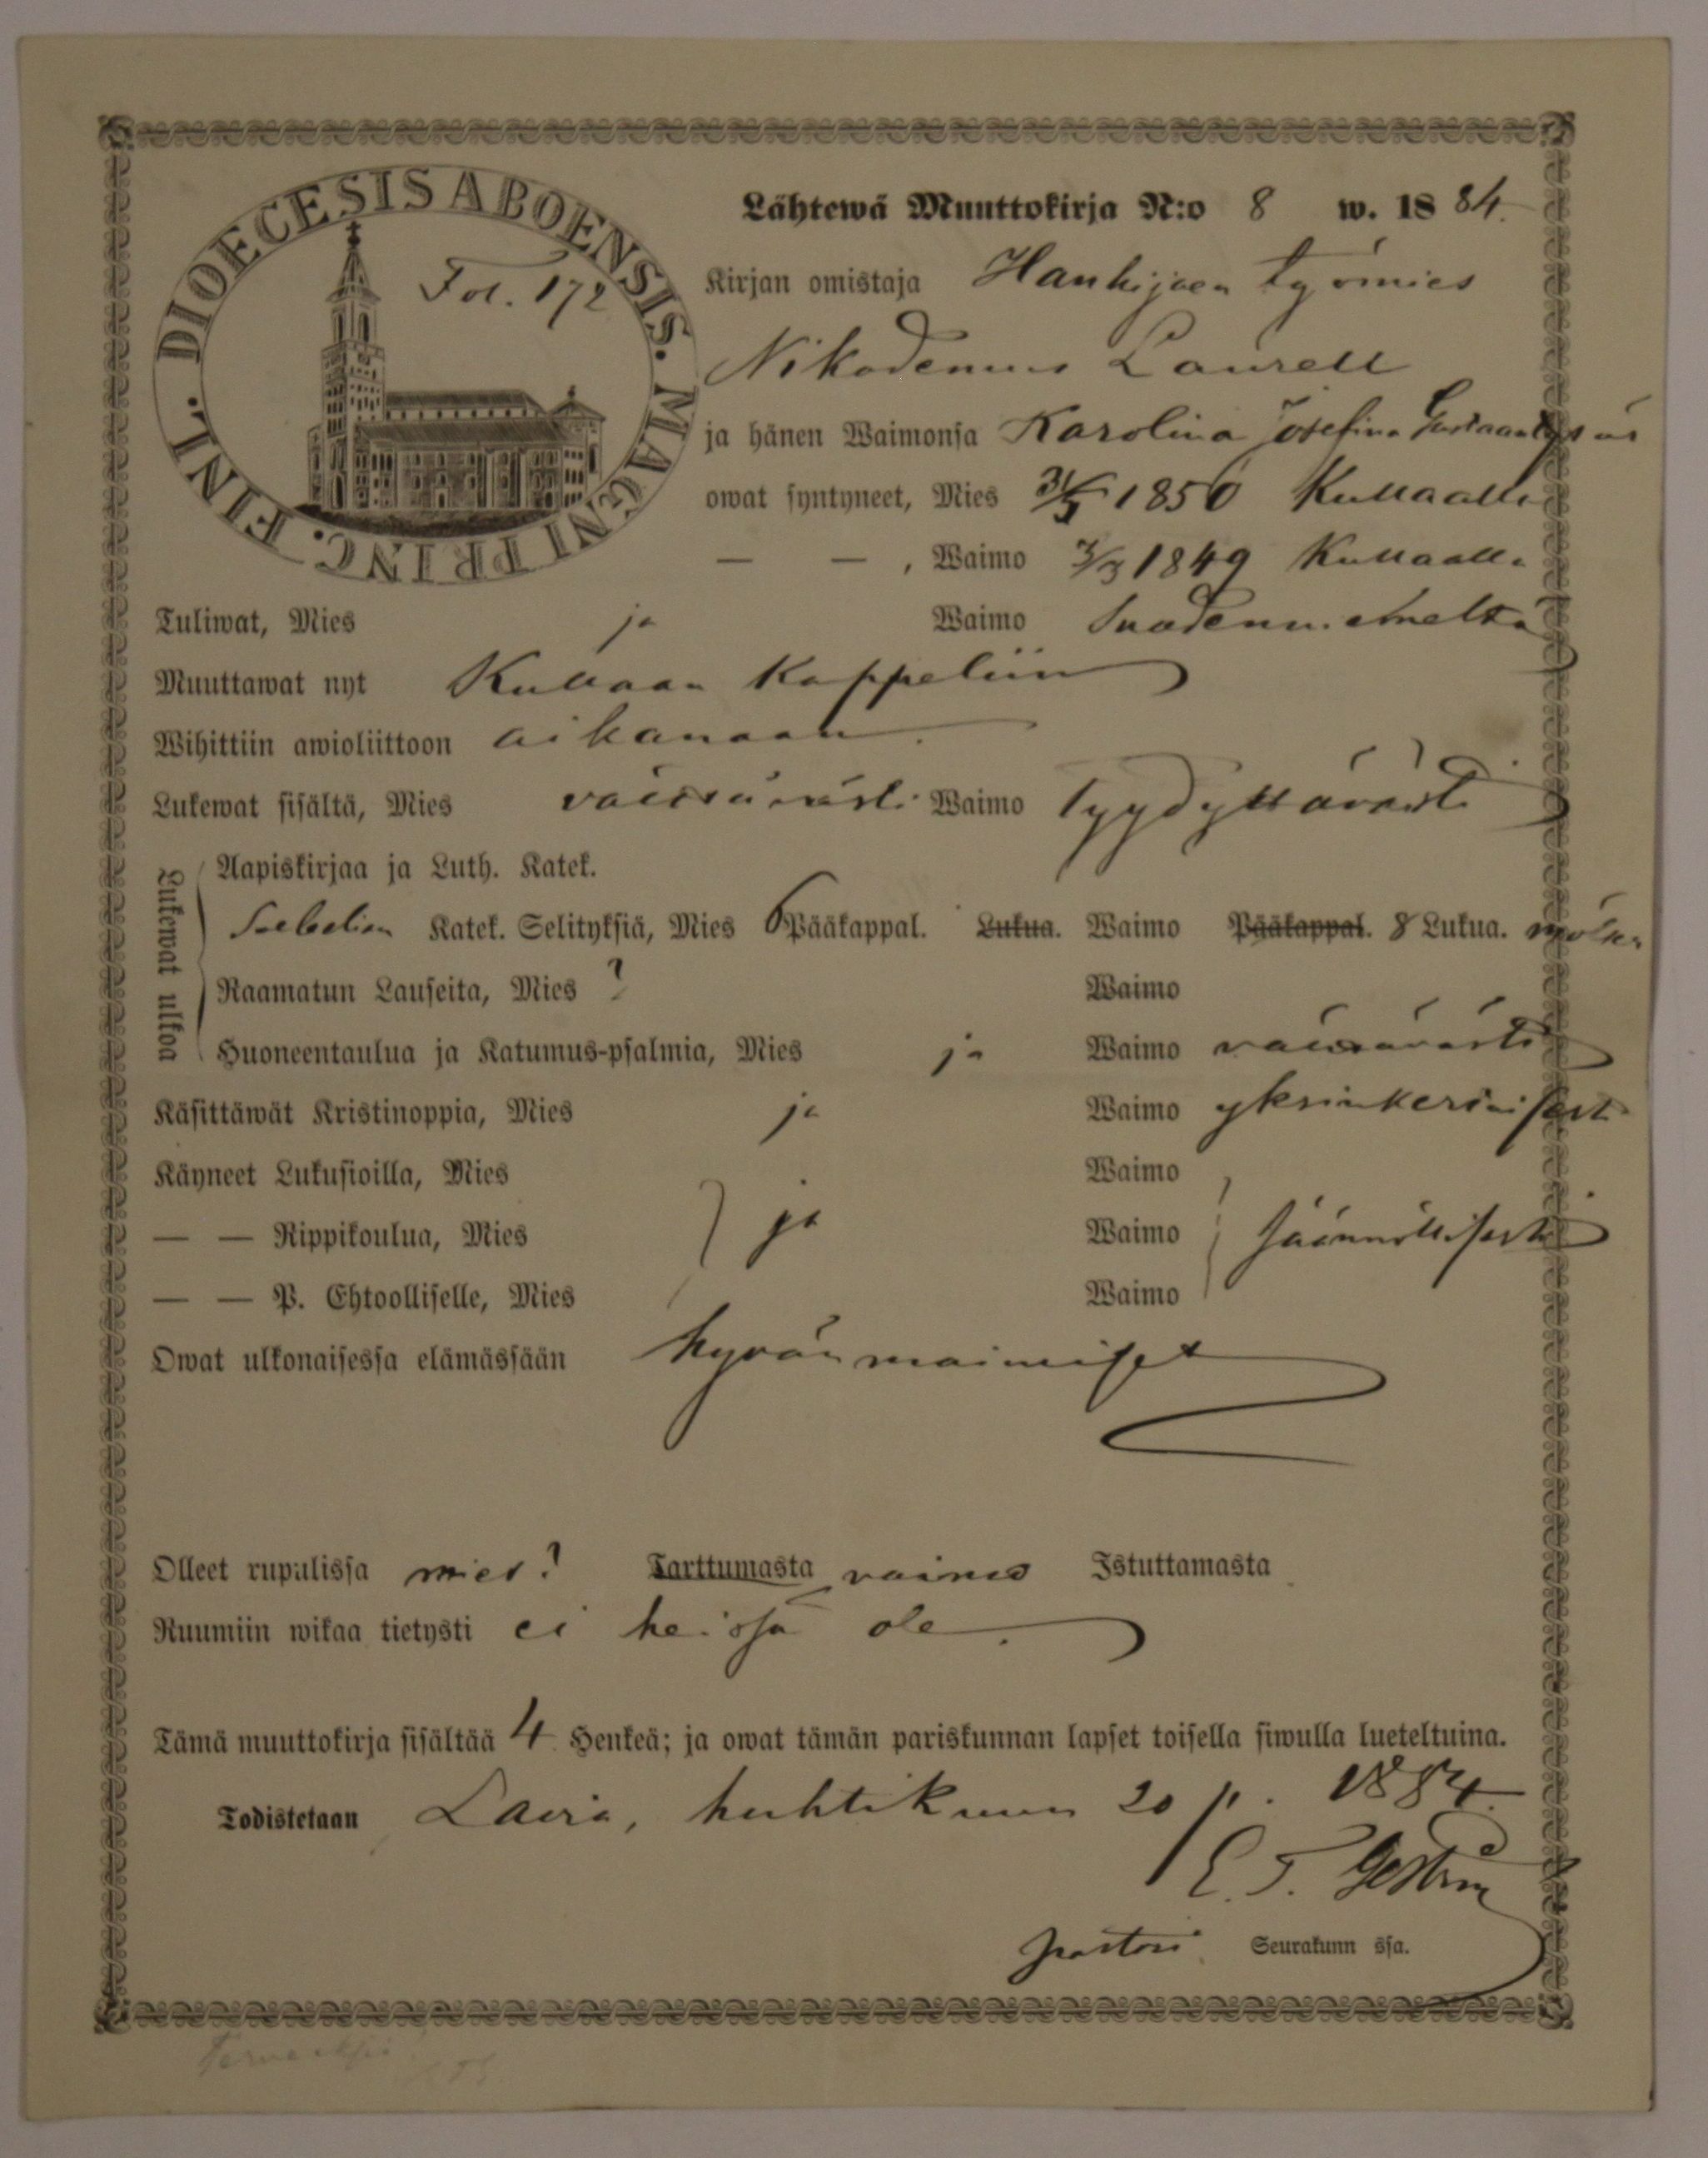 DIOECESIS ABOENSIS. MAGNI PRINC. FINL.
Fol. 172
Lähtewä Muuttokirja N:o 8 w. 1884.
Kirjan omistaja Hanhijoen työmies
Nikodemus Laurell
ja hänen Waimonsa Karolina Josefina
owat syntyneet, Mies 1850 Kullaalla
— — , Waimo 7/3 1849 Kullaalla
Tuliwat, Mies ja Waimo Suodenniemeltä
Muuttawat nyt Kullaan kappeliin
Wihittiin awioliittoon aikanaan.
Lukewat sisältä, Mies välttävästi Waimo tyydyttävästi
Lukewat ulkoa
Aapiskirjaa ja Luth. Katek.
Katek. Selityksiä, Mies 6 Pääkappal. Lukua. Waimo Pääkappal. 8 Lukua.
Raamatun Lauseita, Mies ? Waimo
Huoneentaulua ja Katumus-psalmia, Mies ja Waimo välttävästi
Käsittäwät Kristinoppia, Mies ja Waimo yksinkertaisesti
Käyneet Lukusioilla, Mies Waimo
— — Rippikoulua, Mies ja Waimo säännöllisesti
— — P. Ehtoolliselle, Mies Waimo
Owat ulkonaisessa elämässään hyvänmainiset
Olleet rupulissa mies? Tarttumasta vaimo Istuttamasta
Ruumiin wikaa tietysti ei heissä ole.
Tämä muuttokirja sisältää 4 Henkeä; ja owat tämän pariskunnan lapset toisella siwulla lueteltuina.
Todistetaan Lavia, huhtikuun 20 p. 1884.
E. F.
pastori Seurakunn ssa.